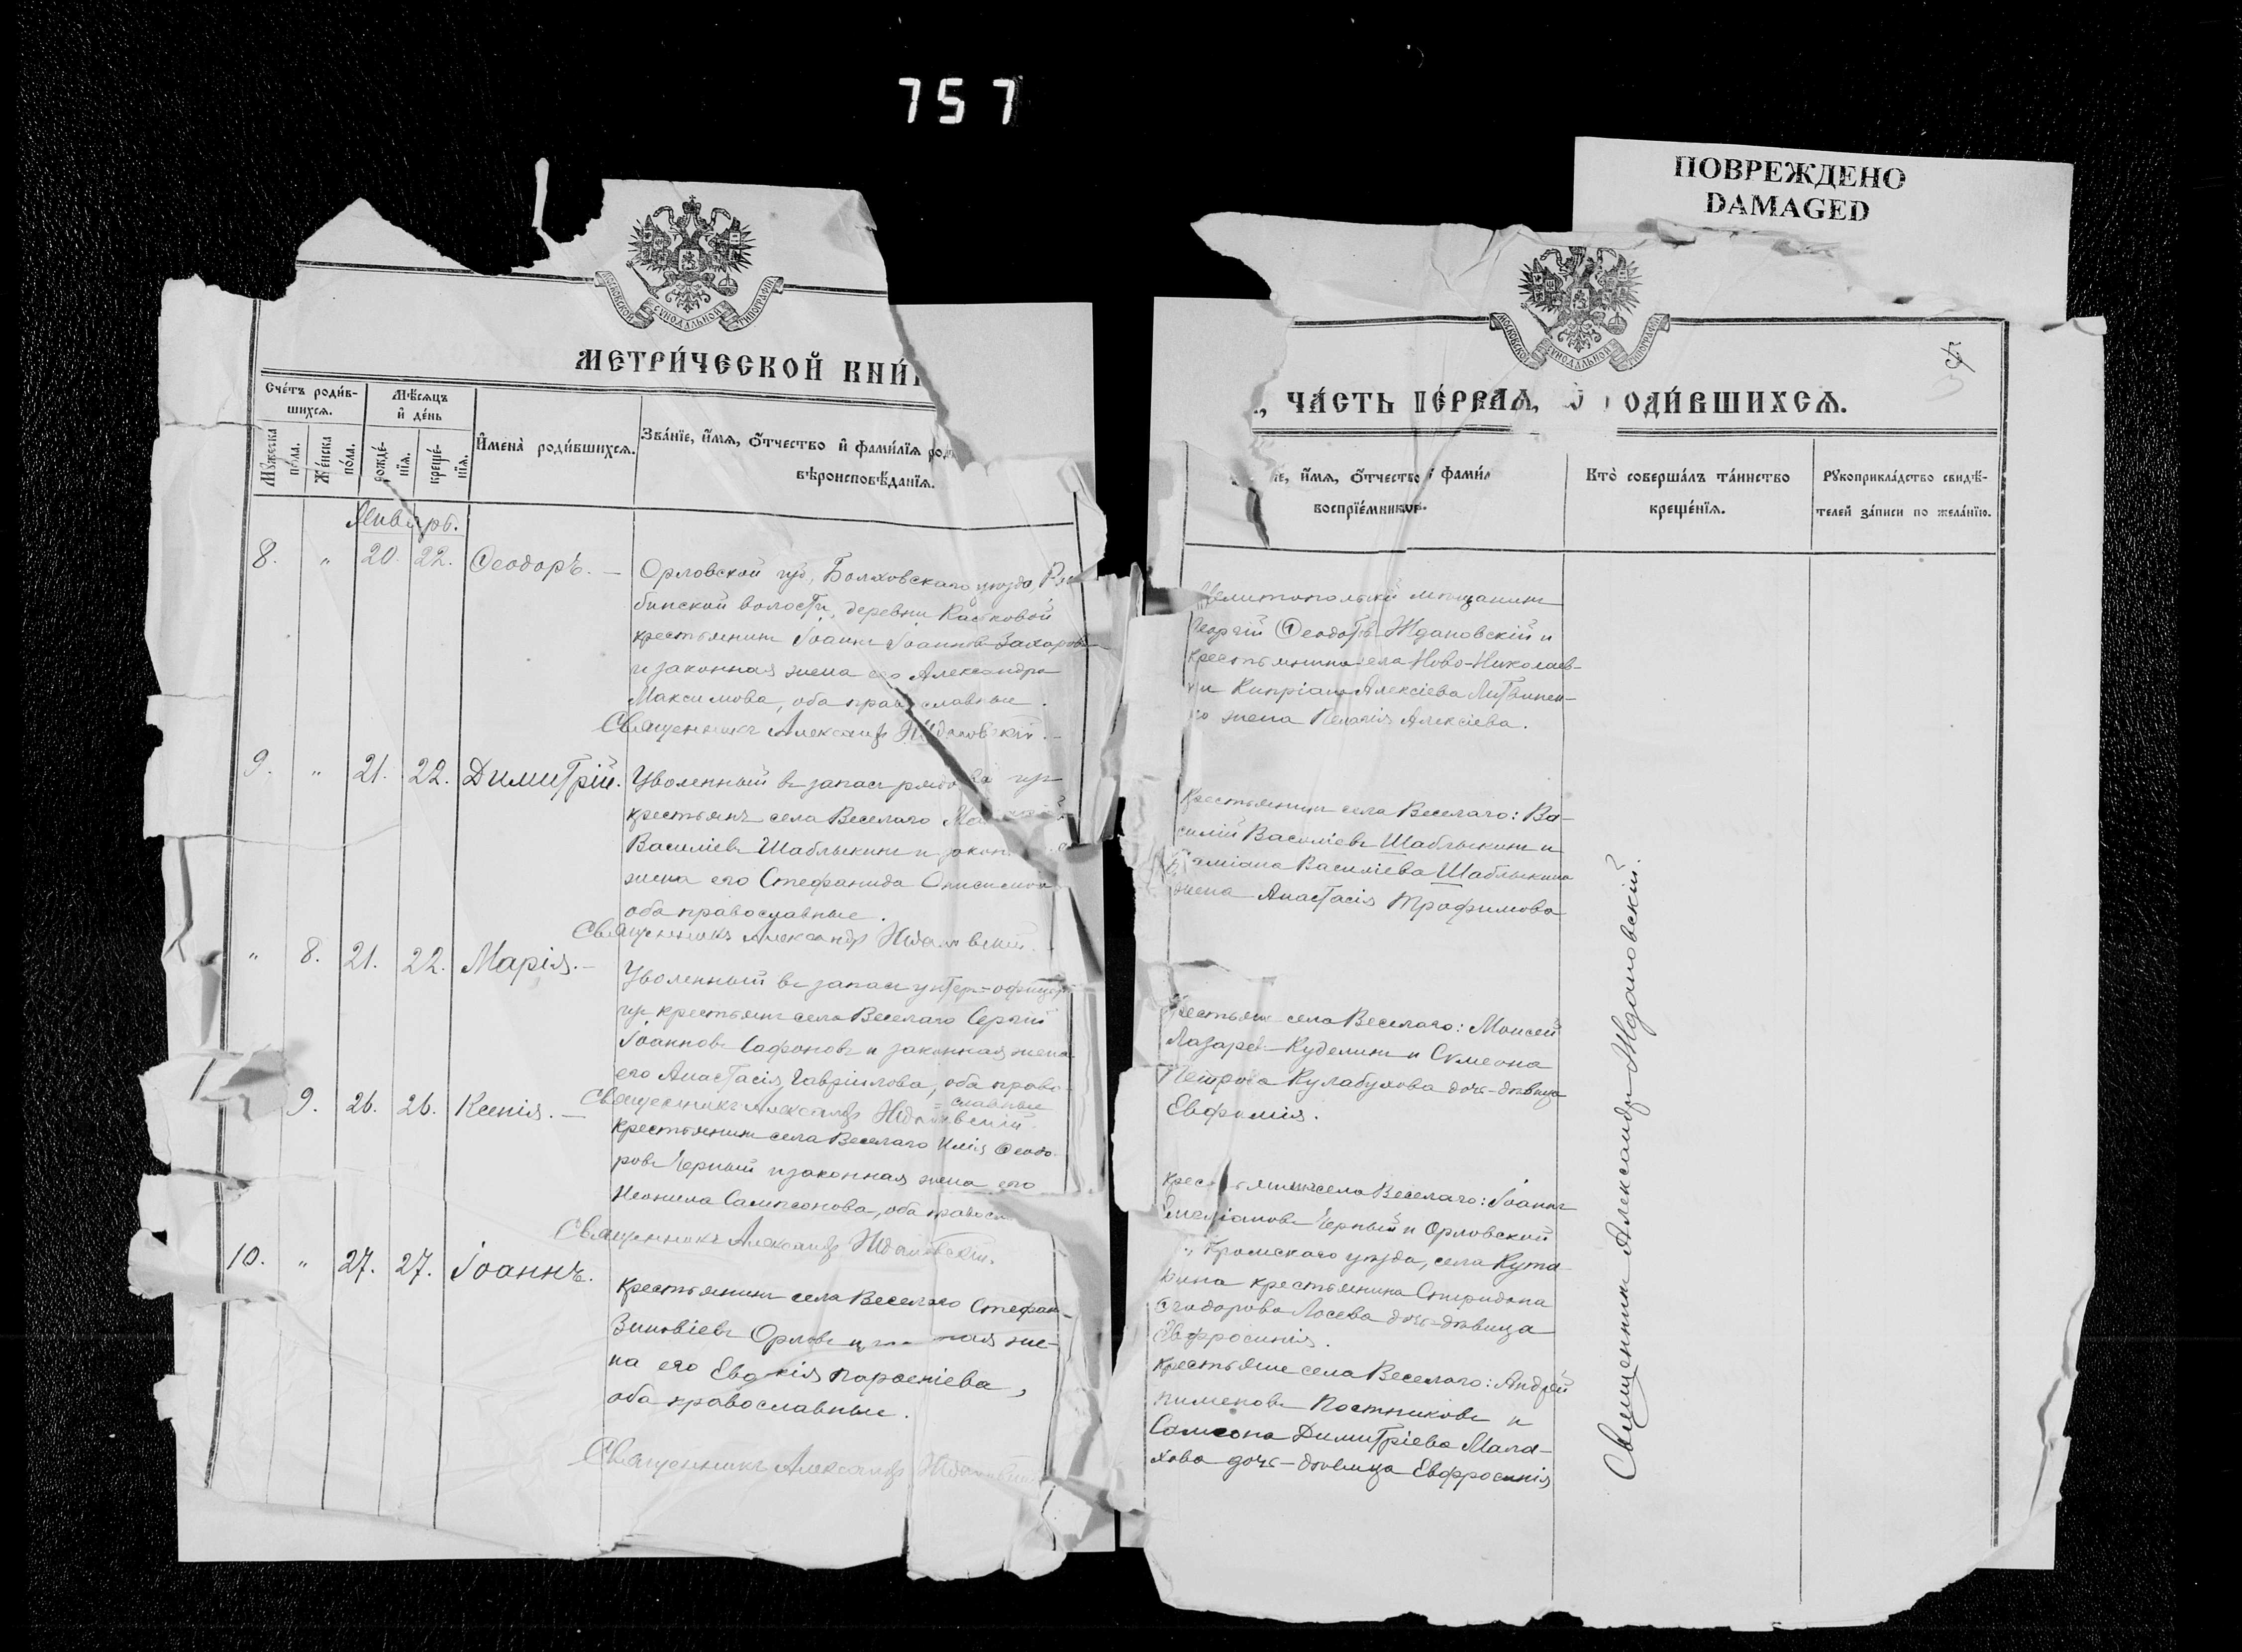 757
ПОВРЕЖДЕНО
DAMAGED
МОСКОВСКОЙ СѴНОДАЛЬНОЙ ТИПОГРАФІИ
МЕТРИ́ЧЕСКОЙ КНИ́
Сче́тъ роди́в-
шихся.
Мѣ́сяцъ
и҆ де́нь
И҆мена̀ роди́вшихся.
Зва́нїе, и҆́мя, ѻ҆́тчество и҆ фами́лїя
вѣроисповѣ́данїя.
Мꙋ́жеска по́ла.
Же́нска по́ла.
рожде́-нїя.
креще́-нїя.
Январь.
8. " 20. 22. Ѳеодоръ. —
Орловской губ., Болховскаго уѣзда, Ря
бинской волости, деревни
крестьянинъ Іоаннъ Іоанновъ Захаровъ
и законная жена его Александра
Максимова, оба православные.
Священникъ Александръ Ждановскій. —
9. " 21. 22. Димитрій.
Уволенный въ запасъ рядовой изъ
крестьянъ села Веселаго
Василіевъ Шаблыкинъ и закон
жена его Стефанида Онисимова
оба православные.
Священникъ Александръ Ждановскій.
" 8. 21. 22. Марія. —
Уволенный въ запасъ унтеръ-офицеръ
изъ крестьянъ села Веселаго Сергій
Іоанновъ Сафоновъ и законная жена
его Анастасія Гавріилова, оба право-
славные
Священникъ Александръ Ждановскій.
9. 26. 26. Ксенія. —
Крестьянинъ села Веселаго Илія Ѳеодо-
ровъ Черный и законная жена его
Неонила Сампсонова, оба правосл
Священникъ Александръ Ждановскій.
10. " 27. 27. Іоаннъ.
Крестьянинъ села Веселаго Стефан
Зиновіевъ Орловъ и ная же-
на его Евдокія Парѳеніева,
оба православные.
Священникъ Александръ Ждановскій
МОСКОВСКОЙ СѴНОДАЛЬНОЙ ТИПОГРАФІИ
5
, ЧА́СТЬ ПЕ́РВАЯ, ОДИ́ВШИХСЯ.
їе, и҆́мя, ѻ҆́тчество и҆ фами́л
воспрїе́мниковъ.
Кто̀ соверша́лъ та́инство
креще́нїя.
Рꙋкоприкла́дство свидѣ́-
телей за́писи по жела́нїю.
Мелитопольскій мѣщанинъ
Георгій Ѳеодотовъ Ждановскій и
крестьянина села Ново-Николаев-
ки Кипріана Алексіева Литвинен-
ко жена Пелагія Алексіева.
Крестьянинъ села Веселаго: Ва-
силій Василіевъ Шаблыкинъ и
Василіева Шаблыкина
жена Анастасія Трофимова
Крестьяне села Веселаго: Моисей
Лазаревъ Куделинъ и Сѵмеона
Петрова Кулабухова дочь-дѣвица
Евфимія.
Крестьянинъ села Веселаго: Іоаннъ
Емеліановъ Черный и Орловской
Кромскаго уѣзда, села Кута
фина крестьянина Спиридона
Ѳеодорова Лосева дочь-дѣвица
Евфросинія.
Крестьяне села Веселаго: Андрей
Пименовъ Постниковъ и
Сампсона Димитріева Мала-
хова дочь-дѣвица Евфросинія
Священникъ Александръ Ждановскій.